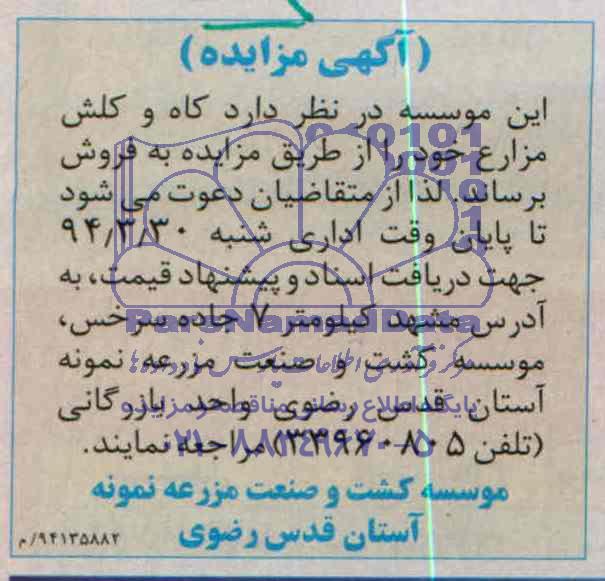 (آگهی مزایده)
این موسسه در نظر دارد کاه و کلش
مزارع خود را از طریق مزایده به فروش
برساند. لذا از متقاضیان دعوت می شود
تا پایان وقت اداری شنبه ۹۴/۳/۳۰
جهت دریافت اسناد و پیشنهاد قیمت، به
آدرس مشهد کیلومتر ۷ جاده سرخس،
موسسه کشت و صنعت مزرعه نمونه
آستان قدس رضوی واحد بازرگانی
(تلفن ۵-۳۳۹۶۰۸۰) مراجعه نمایند.
موسسه کشت و صنعت مزرعه نمونه
آستان قدس رضوی
۹۴۱۳۵۸۸۲/م
ParsNamadData
پایگاه اطلاع رسانی مناقصه و مزایده